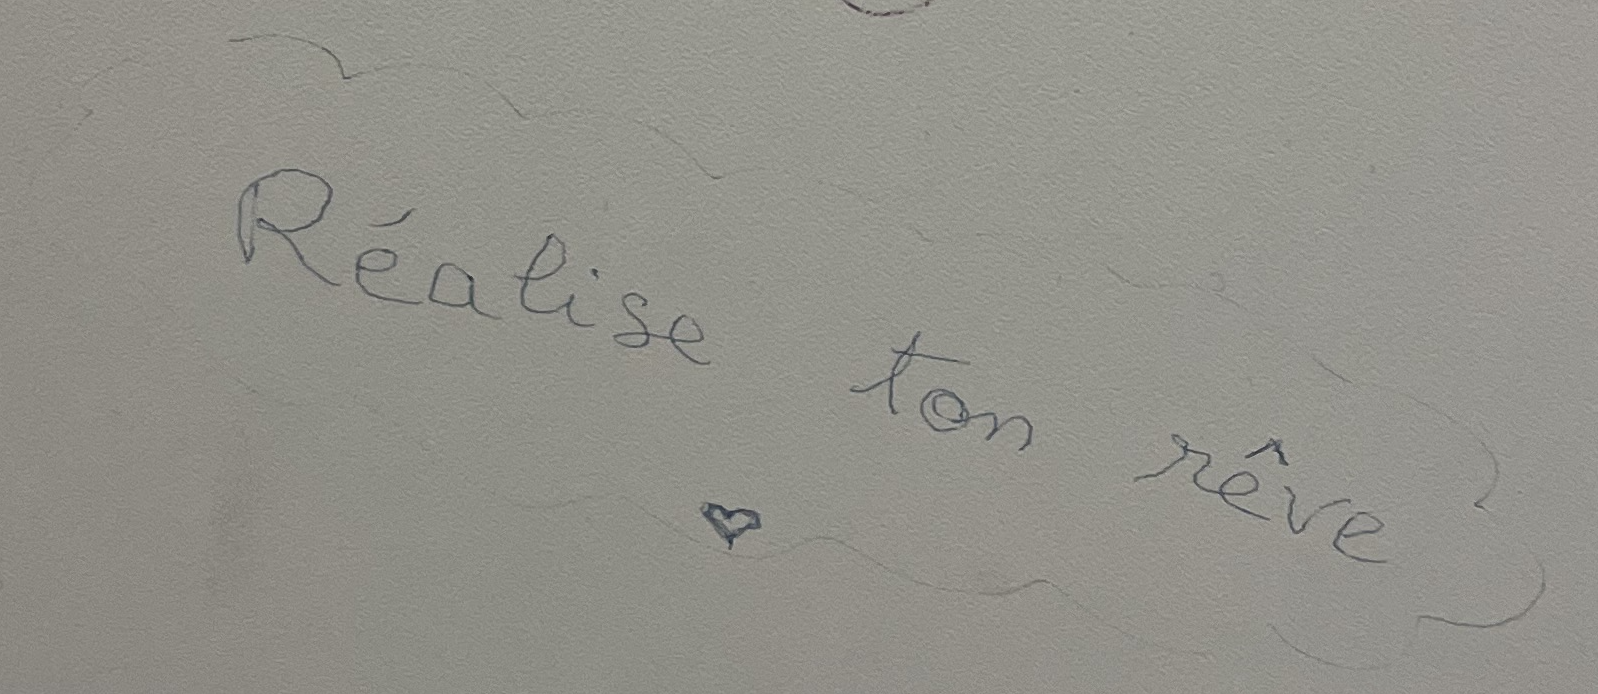 Réalise ton rêve